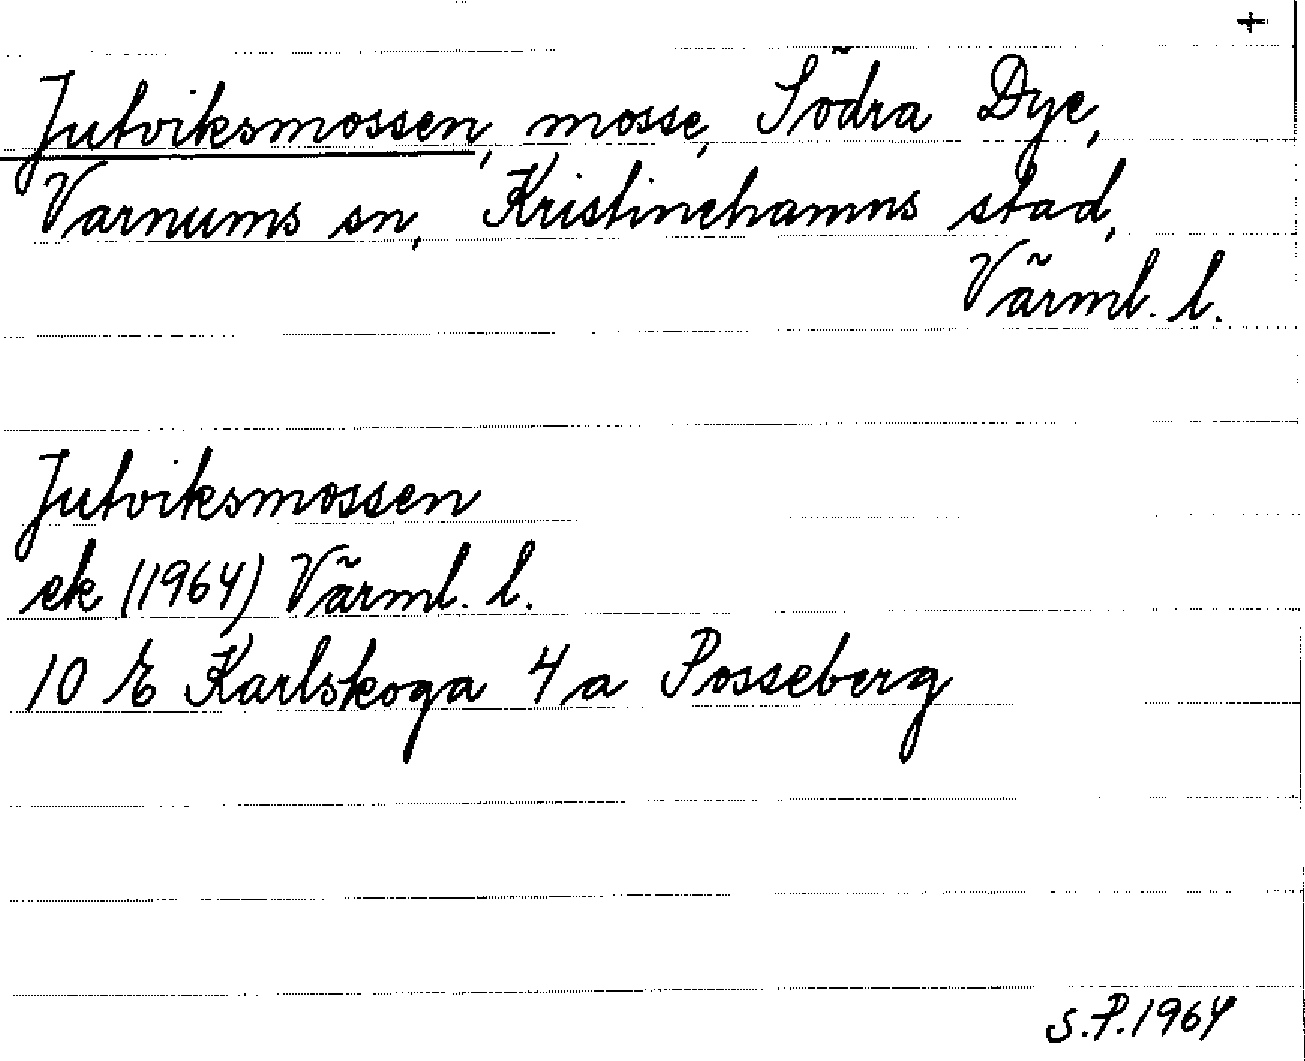 +
Jutviksmossen, mosse, Södra Dye,
Varnums sn, Kristinehamns stad,
Värml. l.
Jutviksmossen
ek (1964) Värml. l.
10 E Karlskoga 4 a Posseberg
S.P. 1964